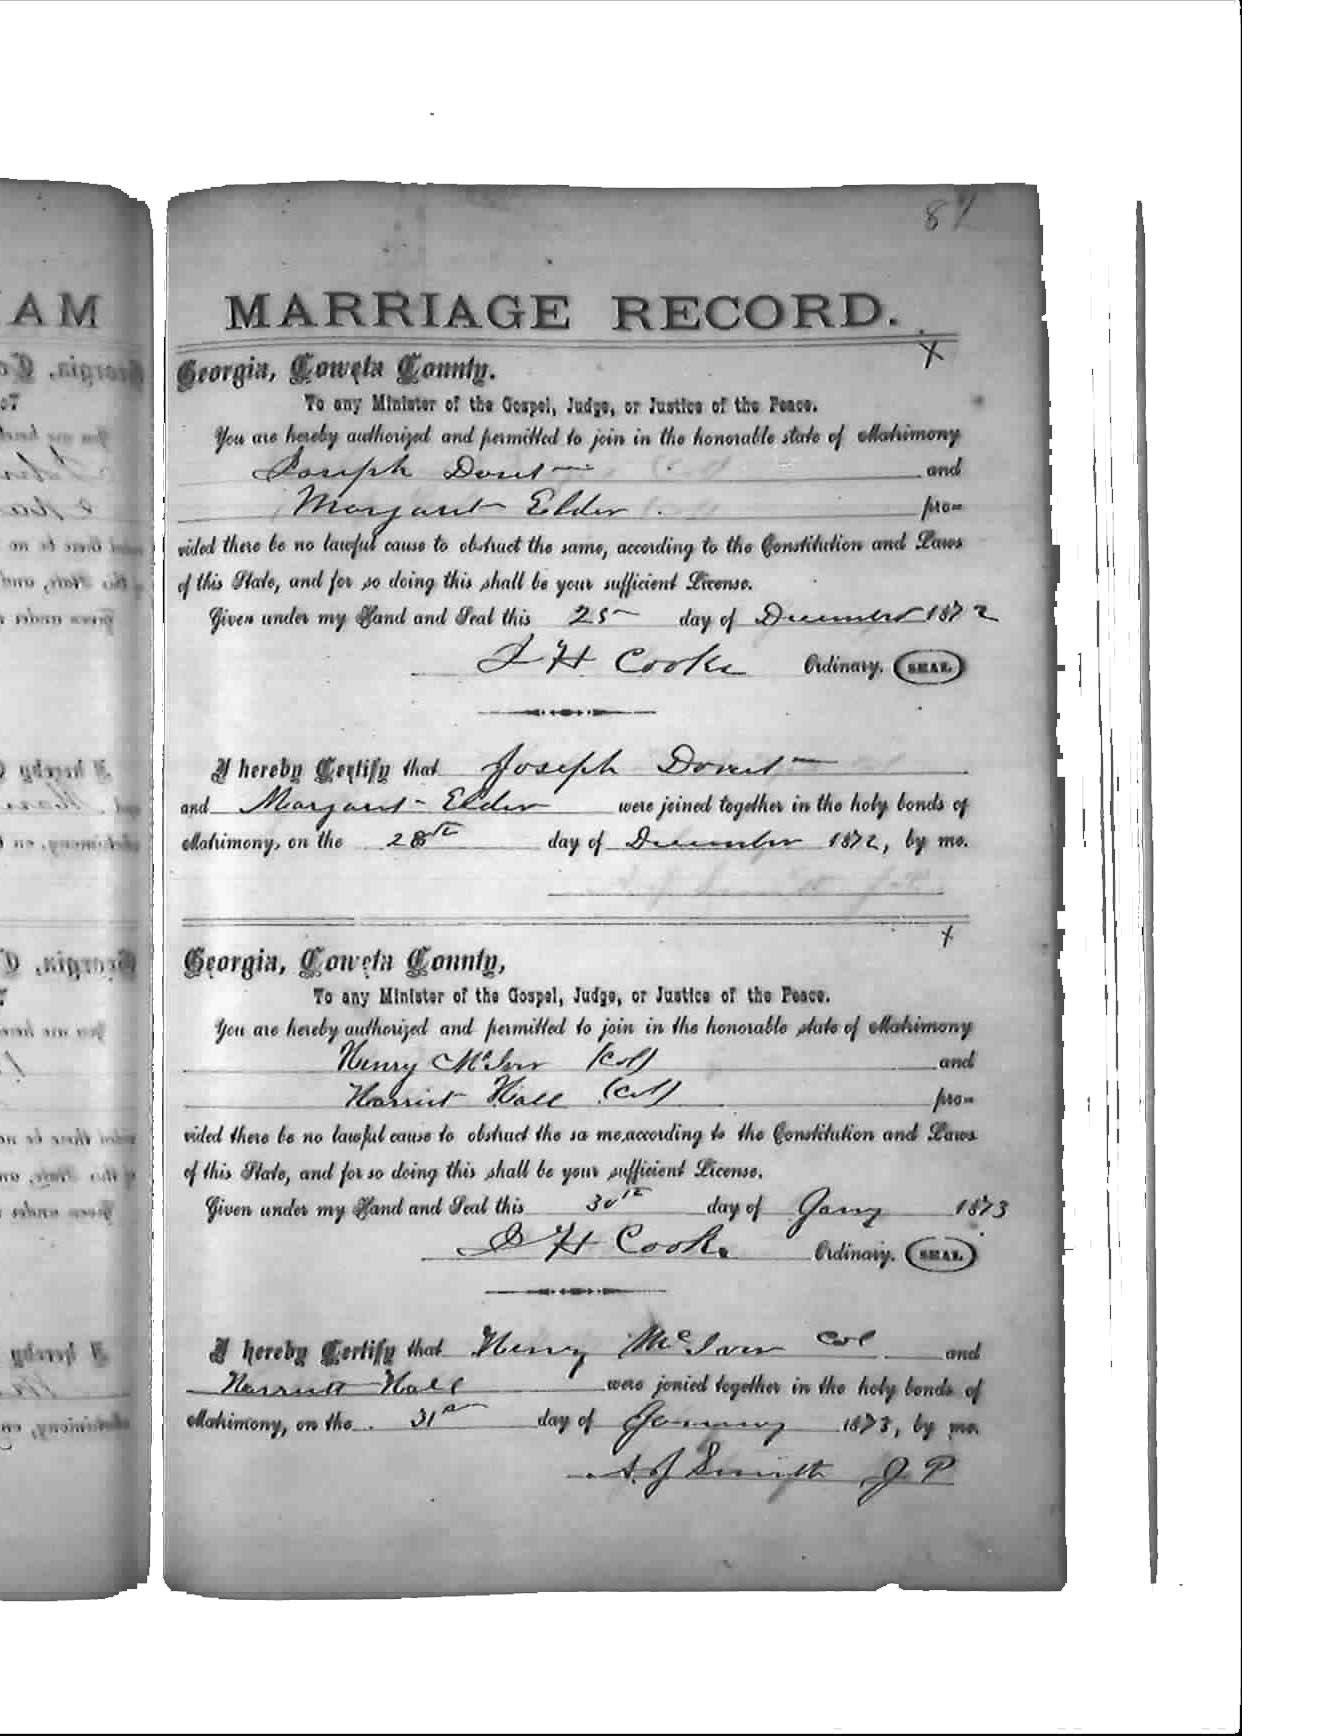 87
MARRIAGE RECORD.
X
Georgia, Coweta County.
To any Minister of the Gospel, Judge, or Justice of the Peace.
You are hereby authorized and permitted to join in the honorable state of Matrimony
Joseph and
Margaret Elder pro=
vided there be no lawful cause to obstruct the same, according to the Constitution and Laws
of this State, and for so doing this shall be your sufficient License.
Given under my Hand and Seal this 25 day of December 1872
H Cooke Ordinary. SEAL
I hereby Certify that Joseph
and Margaret Elder were joined together in the holy bonds of
Matrimony, on the 28th day of December 1872, by me.
X
Georgia, Coweta County,
To any Minister of the Gospel, Judge, or Justice of the Peace.
You are hereby authorized and permitted to join in the honorable state of Matrimony
Henry McIver (col) and
Harriet Hall (col) pro=
vided there be no lawful cause to obstruct the sa me,according to the Constitution and Laws
of this State, and for so doing this shall be your sufficient License.
Given under my Hand and Seal this 30th day of Jany 1873
H Cooke Ordinary. SEAL
I hereby Certify that Henry McIver col and
Harriett Hall were jonied together in the holy bonds of
Matrimony, on the 31st day of January 1873, by me.
Smith J P